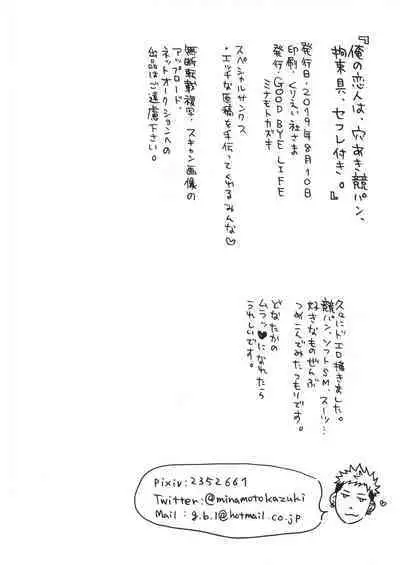 『俺の恋人は、穴あき競パン、
拘束具、セフレ付き。』
発行日・2019年8月10日
印刷・くりえい社さま
発行・GOOD BYE LIFE
ミナモトカズキ
スペシャルサンクス
・エッチな原稿を手伝ってくれるみんな♡
無断転載・複写・スキャン画像の
アップロード、
ネットオークションへの
出品はご遠慮下さい。
久々にドエロ描きました。
競パン、ソフトSM、スーツ…
好きなものぜんぶ
つめこんでみたつもりです。
どなたかの
ムラッ♥になれたら
うれしいです。
pixiv:2352661
Twitter:@minamotokazuki
Mail:g.b.l@hotmail.co.jp